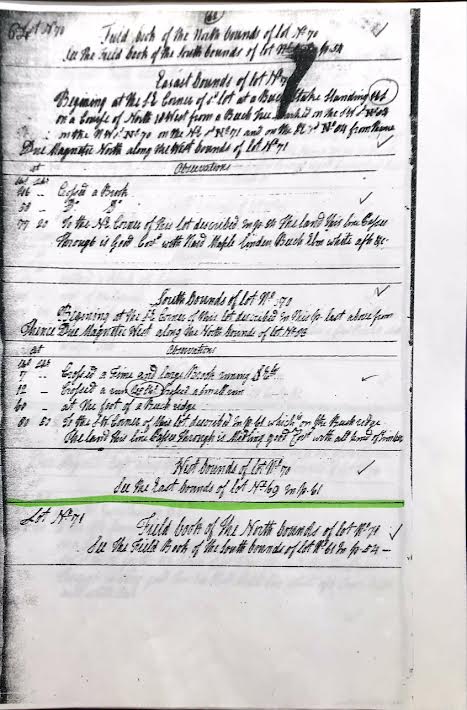 Lot Nº 70
Field book of the North bounds of Lot Nº 70
See the Field book of the South bounds of lot Nº p 54
East bounds of lot Nº 7
Begining at the S.E. Corner of sd lot at a Beech Stake Standing
on a Course of North West from a Beech Tree marked on the S.W. Nº 84
on the N.W. Nº 70 on the N.E. Nº 71 and on the Nº 84 from thence
Due Magnetic North along the West bounds of lot Nº 71
at Observations
Chs Lks
46 - Crossed a Brook
58 - Do Do
77 20 To the N.E. Corner of this lot described in p 54 The land this line Passes
through is Good with Hard Maple Linden Beech Elm white ash &c
South bounds of lot Nº 70
Begining at the S.E. Corner of this lot described in this p. last above from
thence Due Magnetic West along the North bounds of lot Nº 83
at Observations
Chs Lks
7 - Crossed a Fine and large Brook runing
12 - Crossed a run Crossed a small run
60 - at the foot of a Beech ridge
80 80 To the S.W. Corner of this lot described in p. 61 which is on the Beech ridge
The land this line Passes through is good with all kind of timber
West bounds of lot Nº 70
See the East bounds of lot Nº 69 in p. 61
Lot Nº 71
Field book of the North bounds of lot Nº 71
See the Field Book of the South bounds of lot Nº 61 in p. 54 -